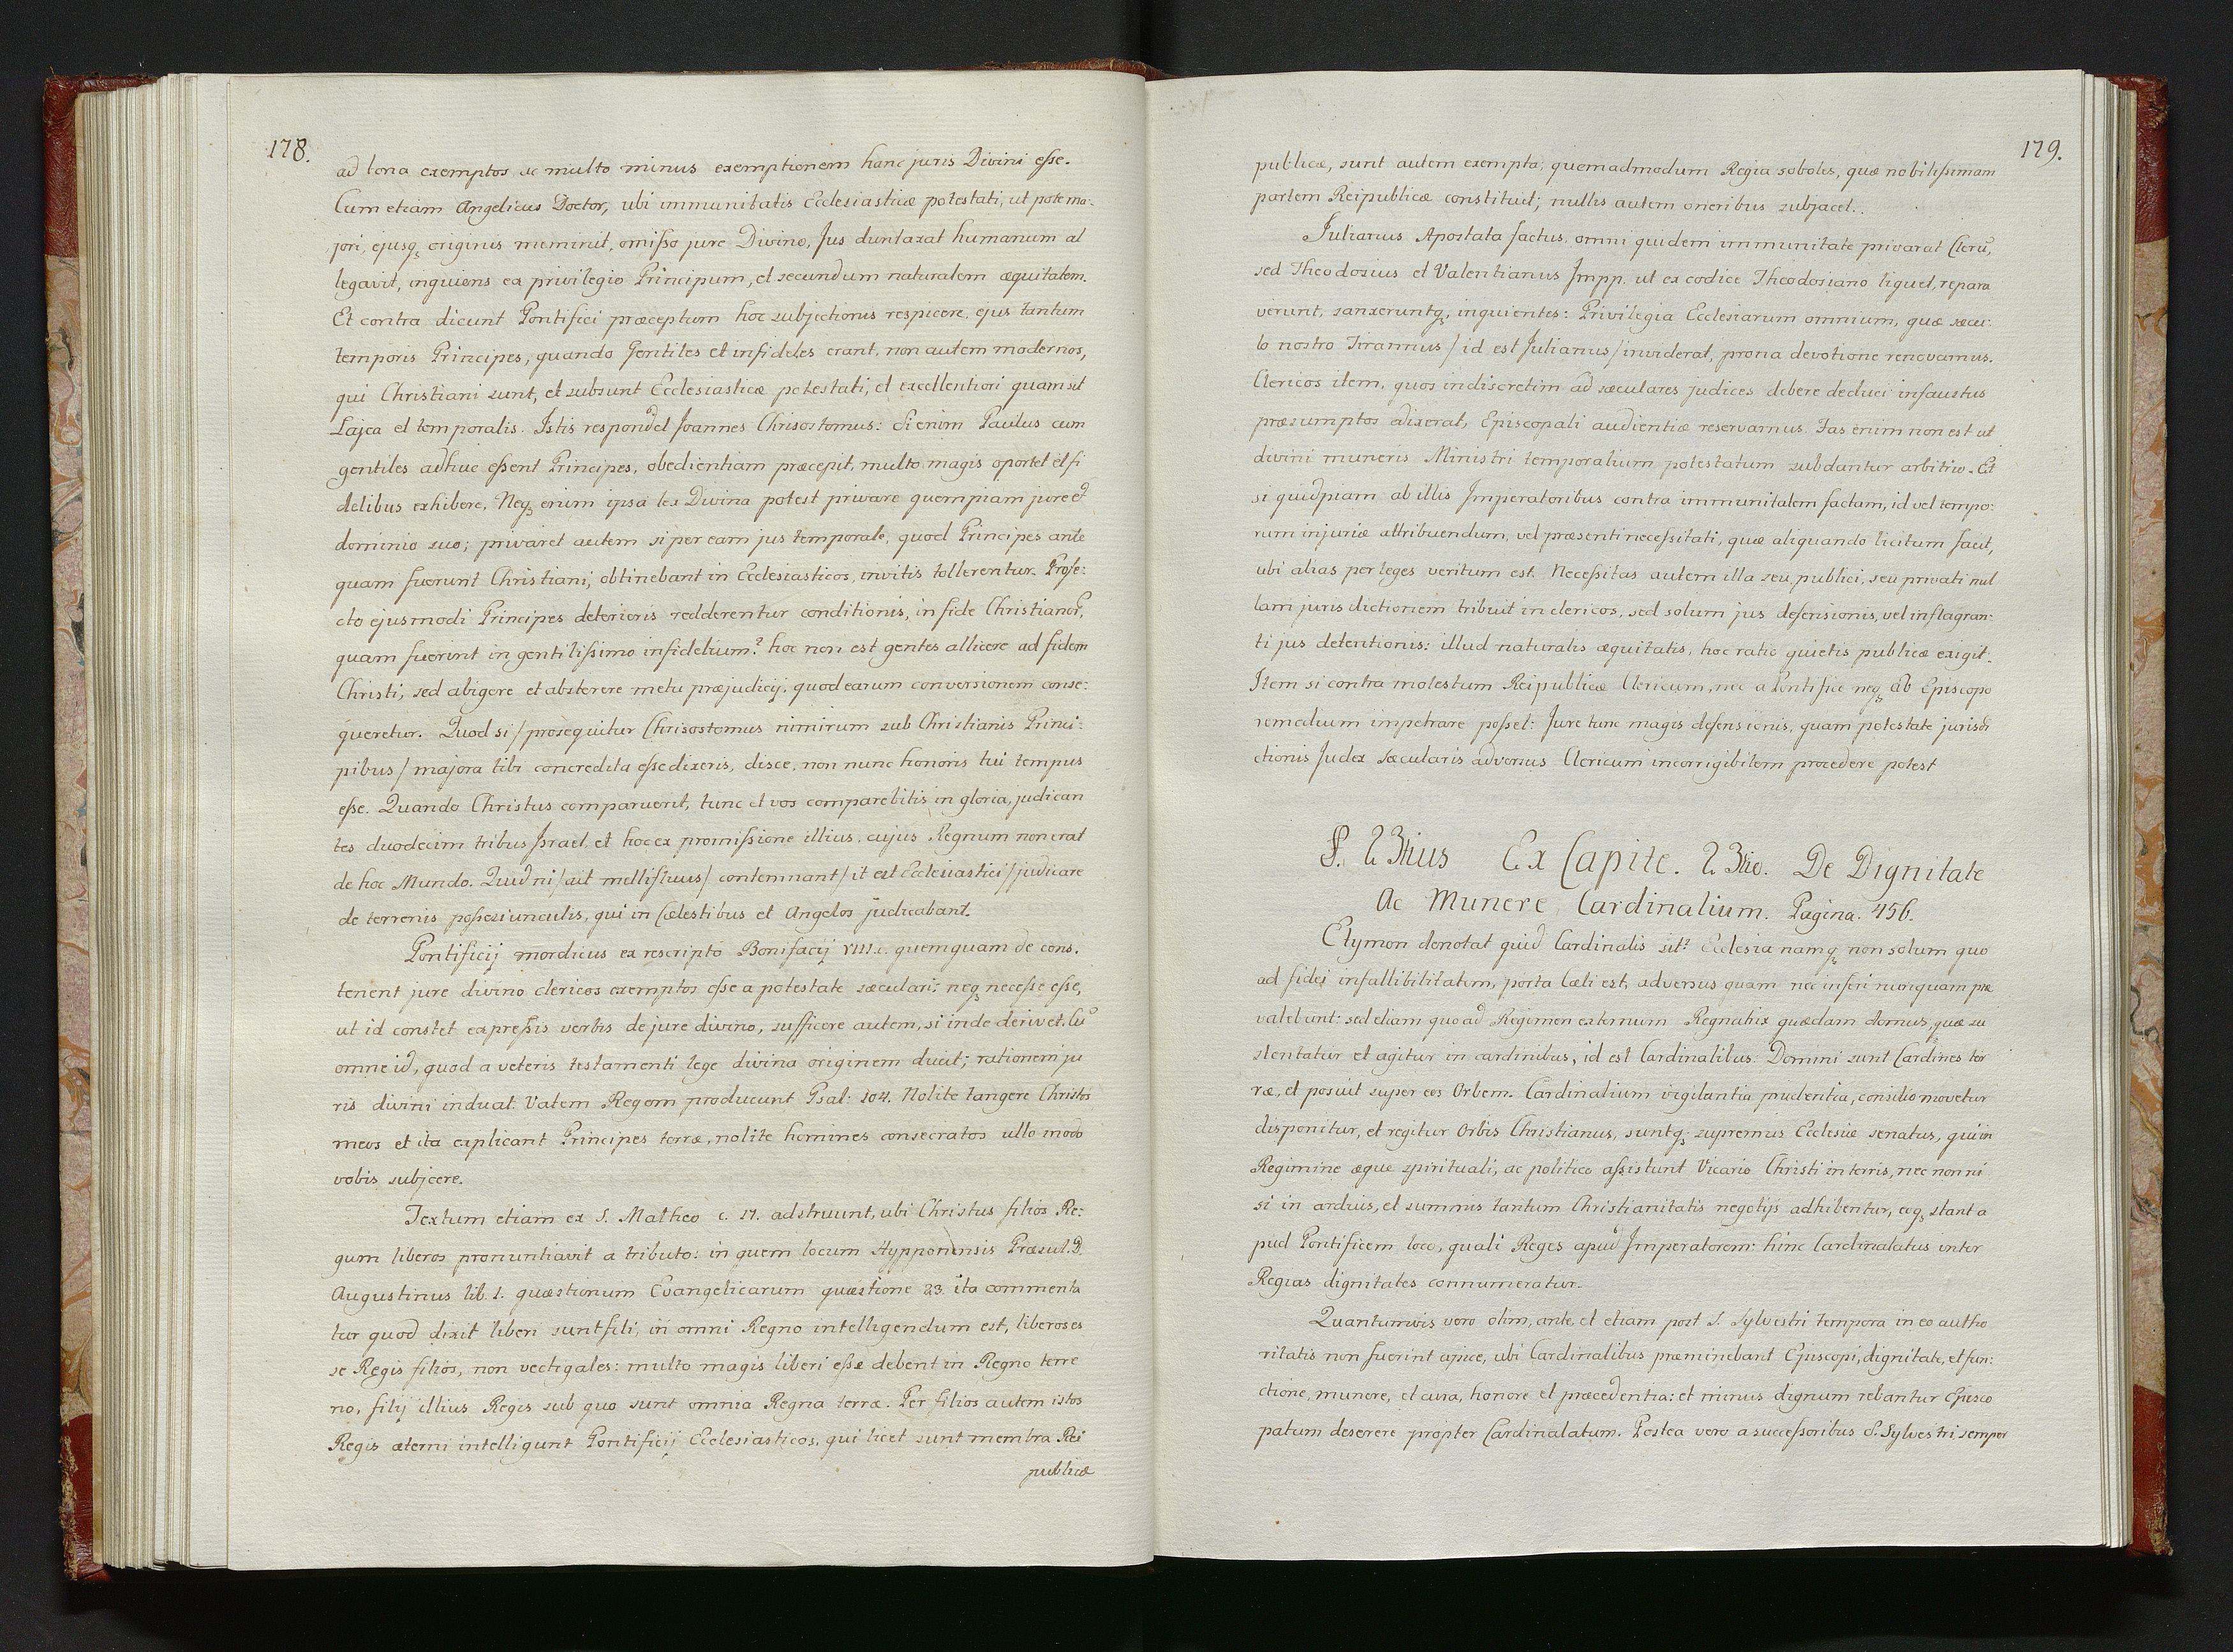 178.
ad bona exemptos ac multo minus exemptionem hanc juris Divini eſse.
Cum etiam Angelicus Doctor, ubi immunitatis Ecclesiasticæ potestati, ut pote ma-
jori, ejusq₃ originis meminit, omiſso jure Divino, Jus duntaxat humanum al
legavit, inquiens ex privilegio Principum, et secundum naturalem æquitatem.
Et contra dicunt Pontifici præceptum hoc subjectionis respicere, ejus tantum
temporis Principes, quando Gentiles et infideles erant, non autem modernos,
qui Christiani sunt, et subsunt Ecclesiasticæ potestati, et excellentiori quam sit
Lajca et temporalis. Istis respondet Joannes Chrisostomus: Si enim Paulus cum
gentiles adhuc eſsent Principes, obedientiam præcepit, multo magis oportet et fi
delibus exhibere. Neq₃ enim ipsa lex Divina potest privare quempiam jure et
dominio suo; privaret autem si per eam jus temporale, quod Principes ante
quam fuerunt Christiani, obtinebant in Ecclesiasticos, invitis tollerentur. Profe:
cto ejusmodi Principes deterioris redderentur conditionis, in fide Christianor,
quam fuerint in gentiliſsimo infidelium? hoc non est gentes allicere ad fidem
Christi, sed abigere et absterere metu præjudicij, quod earum conversionem conse:
queretur. Quod si / prosequitur Chrisostomus nimirum sub Christianis Princi-
pibus / majora tibi concredita eſse dixeris, disce, non nunc honoris tui tempus
eſse. Quando Christus comparuerit, tunc et vos comparebitis in gloria, judican
tes duodecim tribus Israel, et hoc ex promiſsione illius, cujus Regnum non erat
de hoc Mundo. Quid ni / ait mellifluus / contemnant / it est Ecclesiastici / judicare
de terrenis poſsesiunculis, qui in Cælestibus et Angelos judicabant.
Pontificij mordicus ex rescripto Bonifacij VIII. c. quemquam de cons.
tenent jure divino clericos exemptos eſse a potestate sæculari; neq₃ neceſse eſse,
ut id constet expreſsis verbis de jure divino, sufficere autem, si inde derivet. Cū
omne id, quod a veteris testamenti lege divina originem ducit; rationem ju
ris divini induat. Vatem Regem producunt Psal: 104. Nolite tangere Christos
meos et ita explicant Principes terræ, nolite homines consecratos ullo modo
vobis subjcere.
Textum etiam ex S. Matheo c. 17. adstruunt, ubi Christus filios Re:
gum liberos pronuntiavit a tributo: in quem locum Hypponensis Præsul. D.
Augustinus lib. 1. quæstionum Evangelicarum quæstione 23. ita commenta
tur quod dixit liberi sunt fili, in omni Regno intelligendum est, liberos es
se Regis filios, non vectigales: multo magis liberi eſse debent in Regno terre
no, filij illius Regis sub quo sunt omnia Regna terræ. Per filios autem istos
Regis æterni intelligunt Pontificij Ecclesiasticos, qui licet sunt membra Rei
publicæ
179.
publicæ, sunt autem exempta; quemadmodum Regia soboles, quæ nobiliſsimam
partem Reipublicæ constituit; nullis autem oneribus subjacet.
Julianus Apostata factus, omni quidem immunitate privarat Clerū,
sed Theodosius et Valentianus Jmpp. ut ex codice Theodosiano liquet, repara
verunt, sanxeruntq₃, inquientes: Privilegia Ecclesiarum omnium, quæ sæcu:
lo nostro Tirannus / id est Julianus / inviderat, prona devotione renovamus.
Clericos item, quos indiscretim ad sæculares judices debere deduci infaustus
præsumptos edixerat, Episcopali audientiæ reservamus. Fas enim non est ut
divini muneris Ministri temporalium potestatum subdantur arbitrio. Et
si quidpiam ab illis Jmperatoribus contra immunitatem factam, id vel tempo:
rum injuriæ attribuendum, vel præsenti neceſsitati, quæ aliquando licitum facit,
ubi alias per leges veritum est. Neceſsitas autem illa seu publici, seu privati nul
lam juris dictionem tribuit in clericos, sed solum jus defensionis, vel in flagran-
ti jus detentionis: illud naturalis æquitatis, hoc ratio quietis publicæ exigit.
Item si contra molestum Reipublicæ Clericum, nec a Pontifice neq₃ ab Episcopo
remedium impetrare poſset: Jure tunc magis defensionis, quam potestate jurisdi
ctionis Judex sæcularis adversus Clericum incorrigibilem procedere potest
Ex Capite. De Dignitate
Ac Munere Cardinalium. Pagina. 456.
Etymon denotat quid Cardinalis sit? Ecclesia namq₃ non solum quo
ad fidei infallibilitatem, porta Cæli est, adversus quam nec inferi nunquam præ
valebunt: sed etiam quo ad Regimen externum Regnatrix quædam domus, quæ su
stentatur et agitur in cardinibus, id est Cardinalibus: Domini sunt Cardines ter
ræ, et posuit super eos Orbem. Cardinalium vigilantia prudentia, consilio movetur
disponitur, et regitur Orbis Christianus, suntq₃ supremus Ecclesiæ senatus, qui in
Regimine æque spirituali, ac politico aſsistunt Vicario Christi in terris, nec non ni
si in arduis, et summis tantum Christianitatis negotijs adhibentur, eoq₃ stant a
pud Pontificem loco, quali Reges apud Jmperatorem: hinc Cardinalatus inter
Regias dignitates connumeratur.
Quantumvis vero olim, ante, et etiam post S. Sylvestri tempora in eo autho
ritatis non fuerint apice, ubi Cardinalibus præminebant Episcopi, dignitate, et fun:
ctione, munere, et cura, honore et præcedentia: et minus dignum rebantur Episco
patum deserere propter Cardinalatum. Postea vero a succeſsoribus S. Sylvestri semper